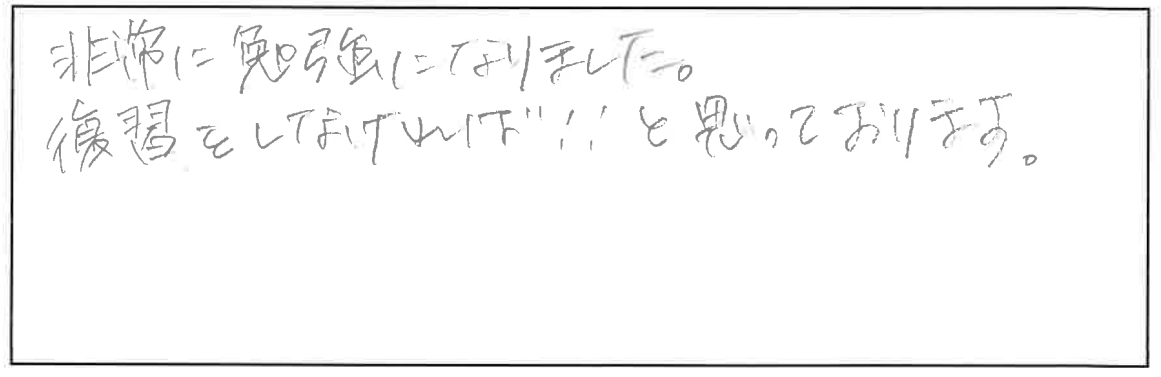 非常に勉強になりました。
復習をしなければ!!と思っております。